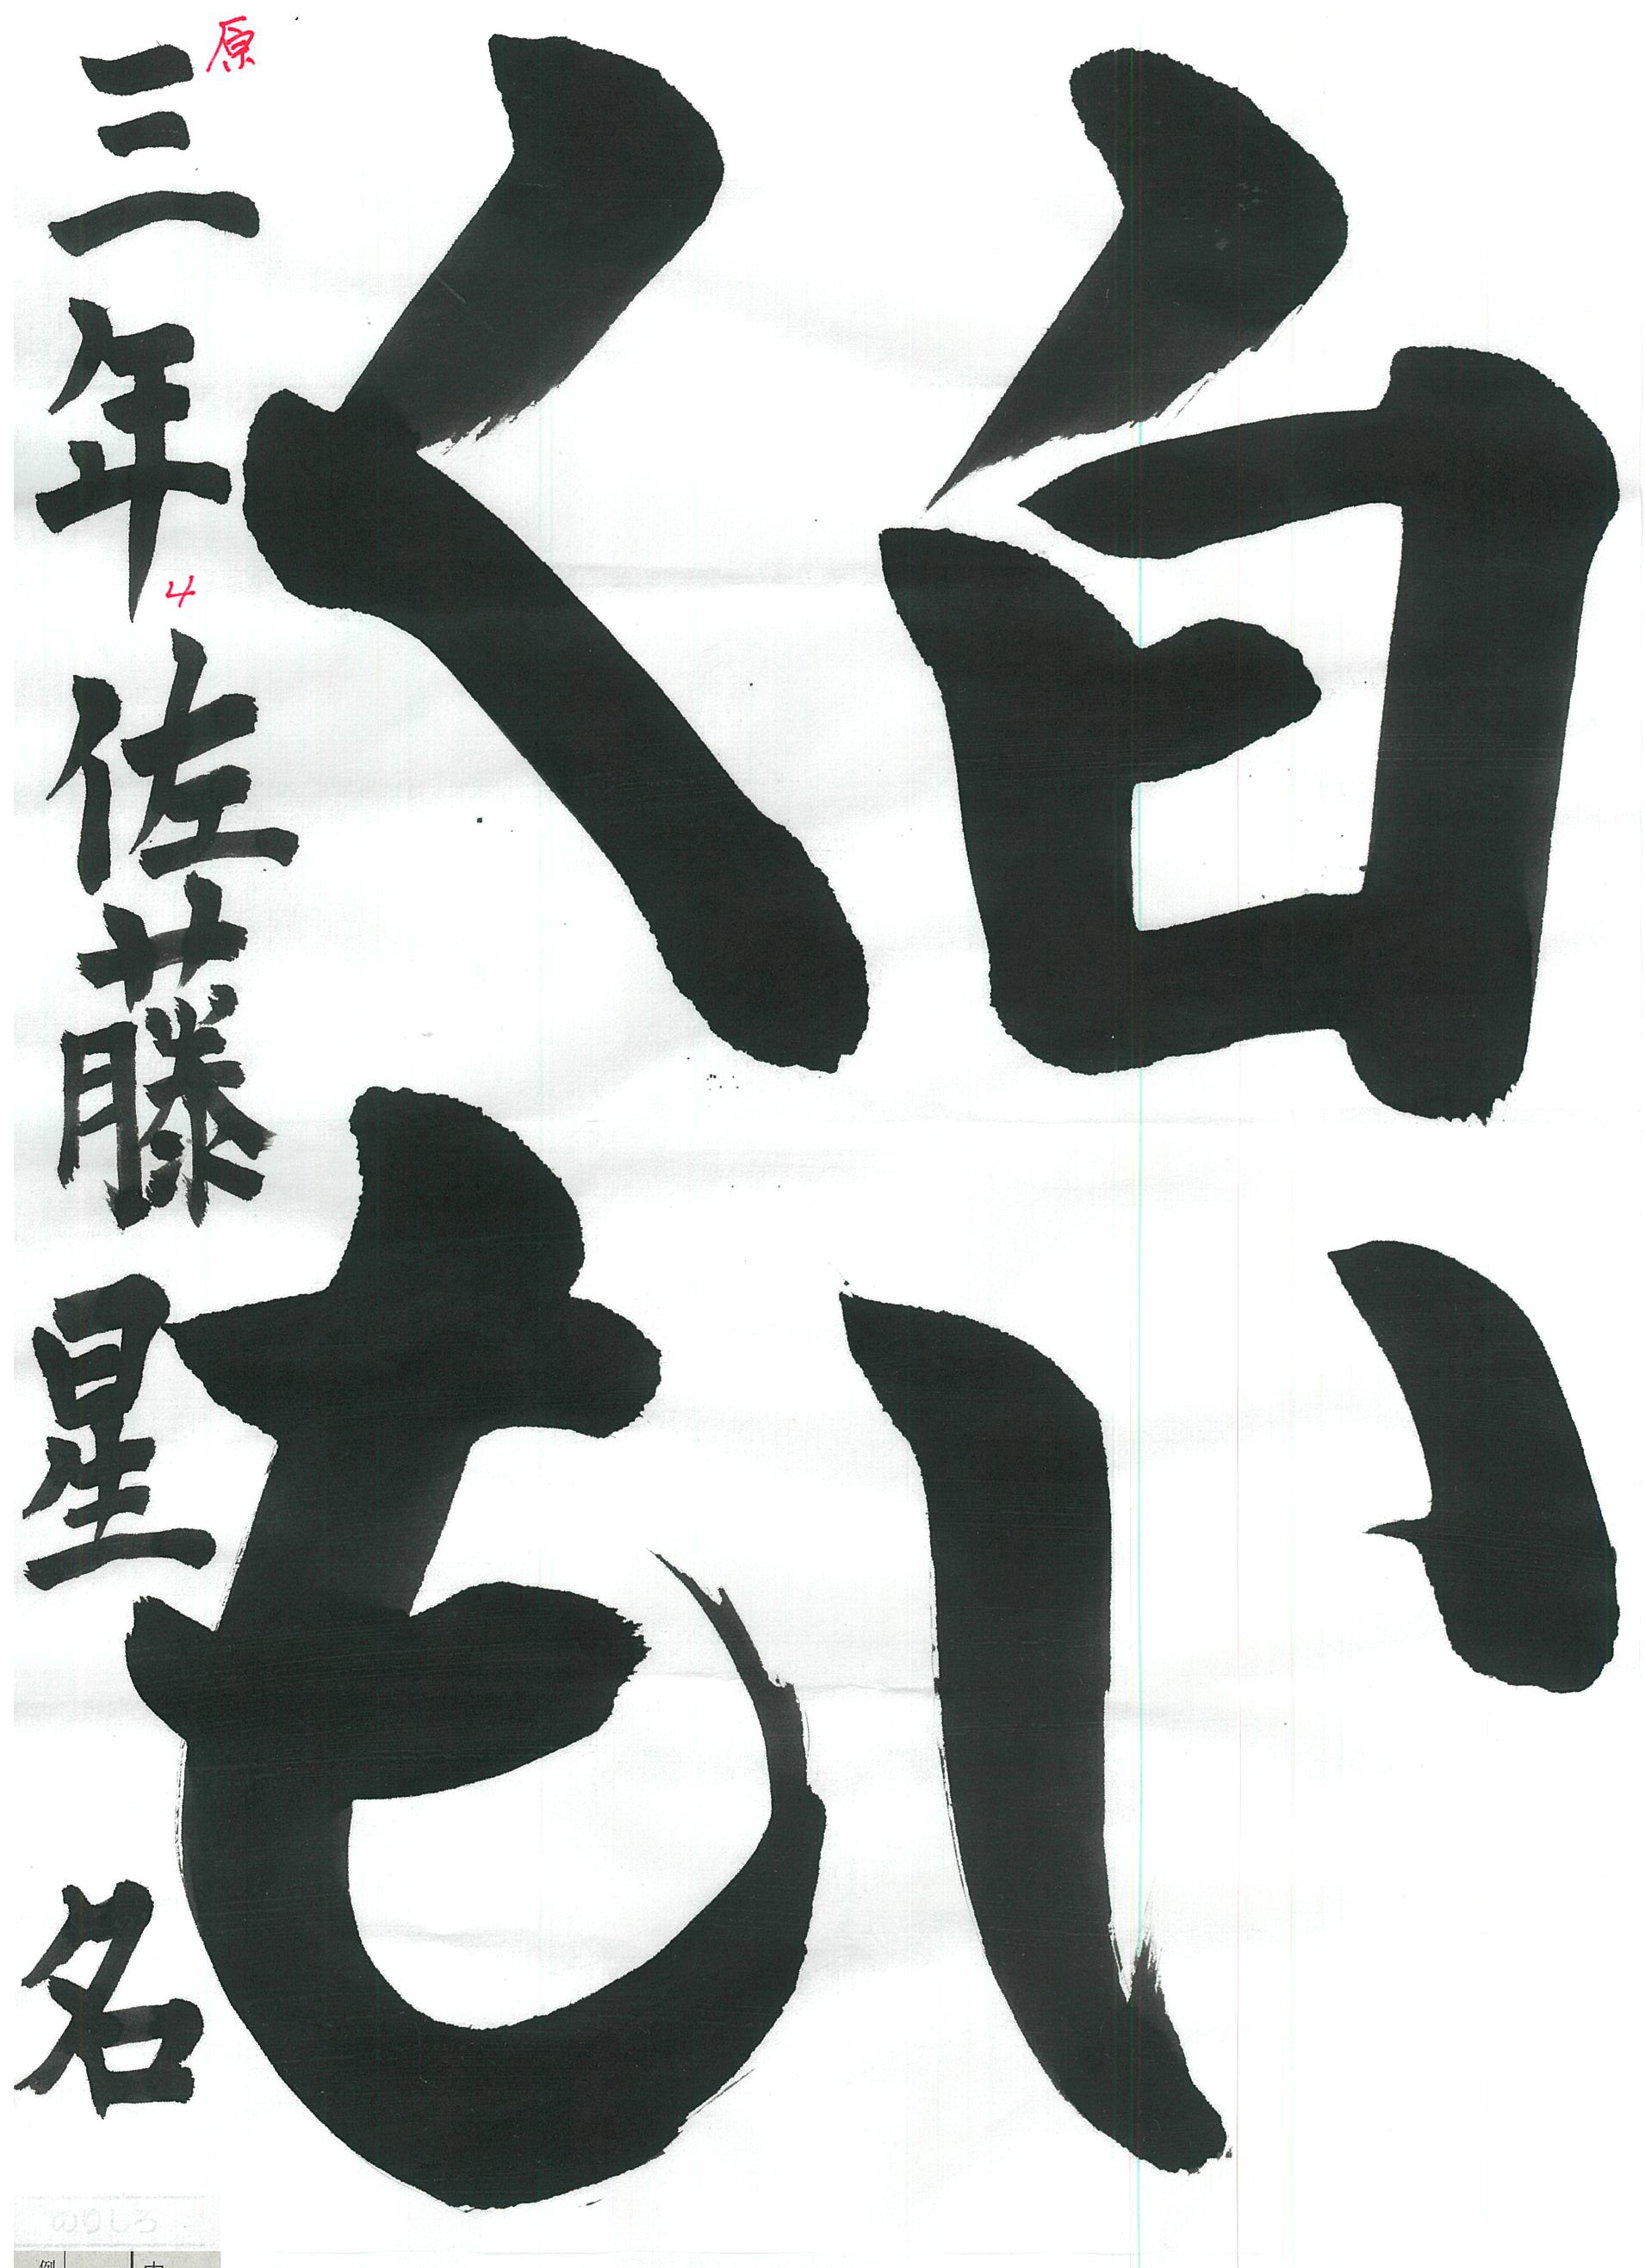 白い
くも
三年 佐藤星名
原
4
のりしろ